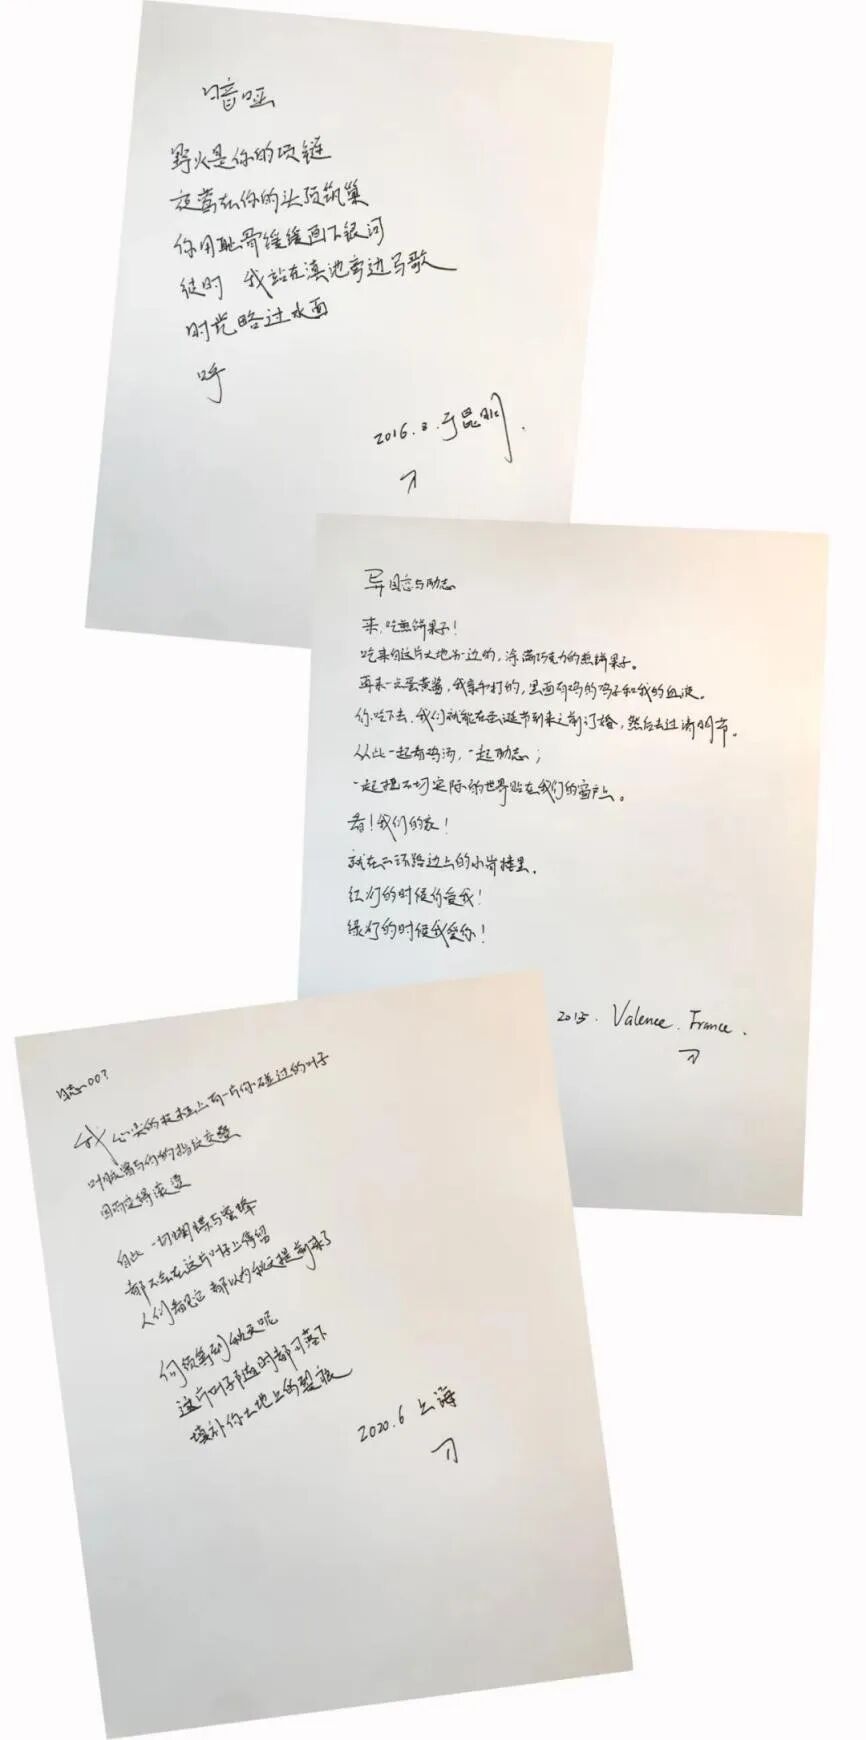 喑哑
野火是你的项链
夜莺在你的头顶筑巢
你用耻骨缓缓画下银河
彼时 我站在滇池旁边写歌
时光略过水面
呼
2016.3.于昆明.
刁
异国恋与励志
来,吃煎饼果子!
吃来自这片大地另一边的,涂满巧克力的煎饼果子。
再来一点蛋黄酱,我亲手打的,里面有鸡的鸡子和我的血液。
你吃下去,我们就能在圣诞节到来之前订婚,然后去过清明节。
从此一起看鸡汤,一起励志;
一起把不切实际的世界贴在我们的窗户上。
看!我们的家!
就在二环路边上的小岗楼里。
红灯的时候你爱我!
绿灯的时候我爱你!
2015. Valence. France.
刁
日志007
我心尖的枝桠上有一片你碰过的叶子
叶脉曾与你的指纹交叠
因而变得滚烫
自此 一切蝴蝶与蜜蜂
都不会在这片叶子上停留
人们看见它 都以为秋天提前来了
何须等到秋天呢
这片叶子随时都可落下
填补你土地上的裂痕
2020.6 上海
刁